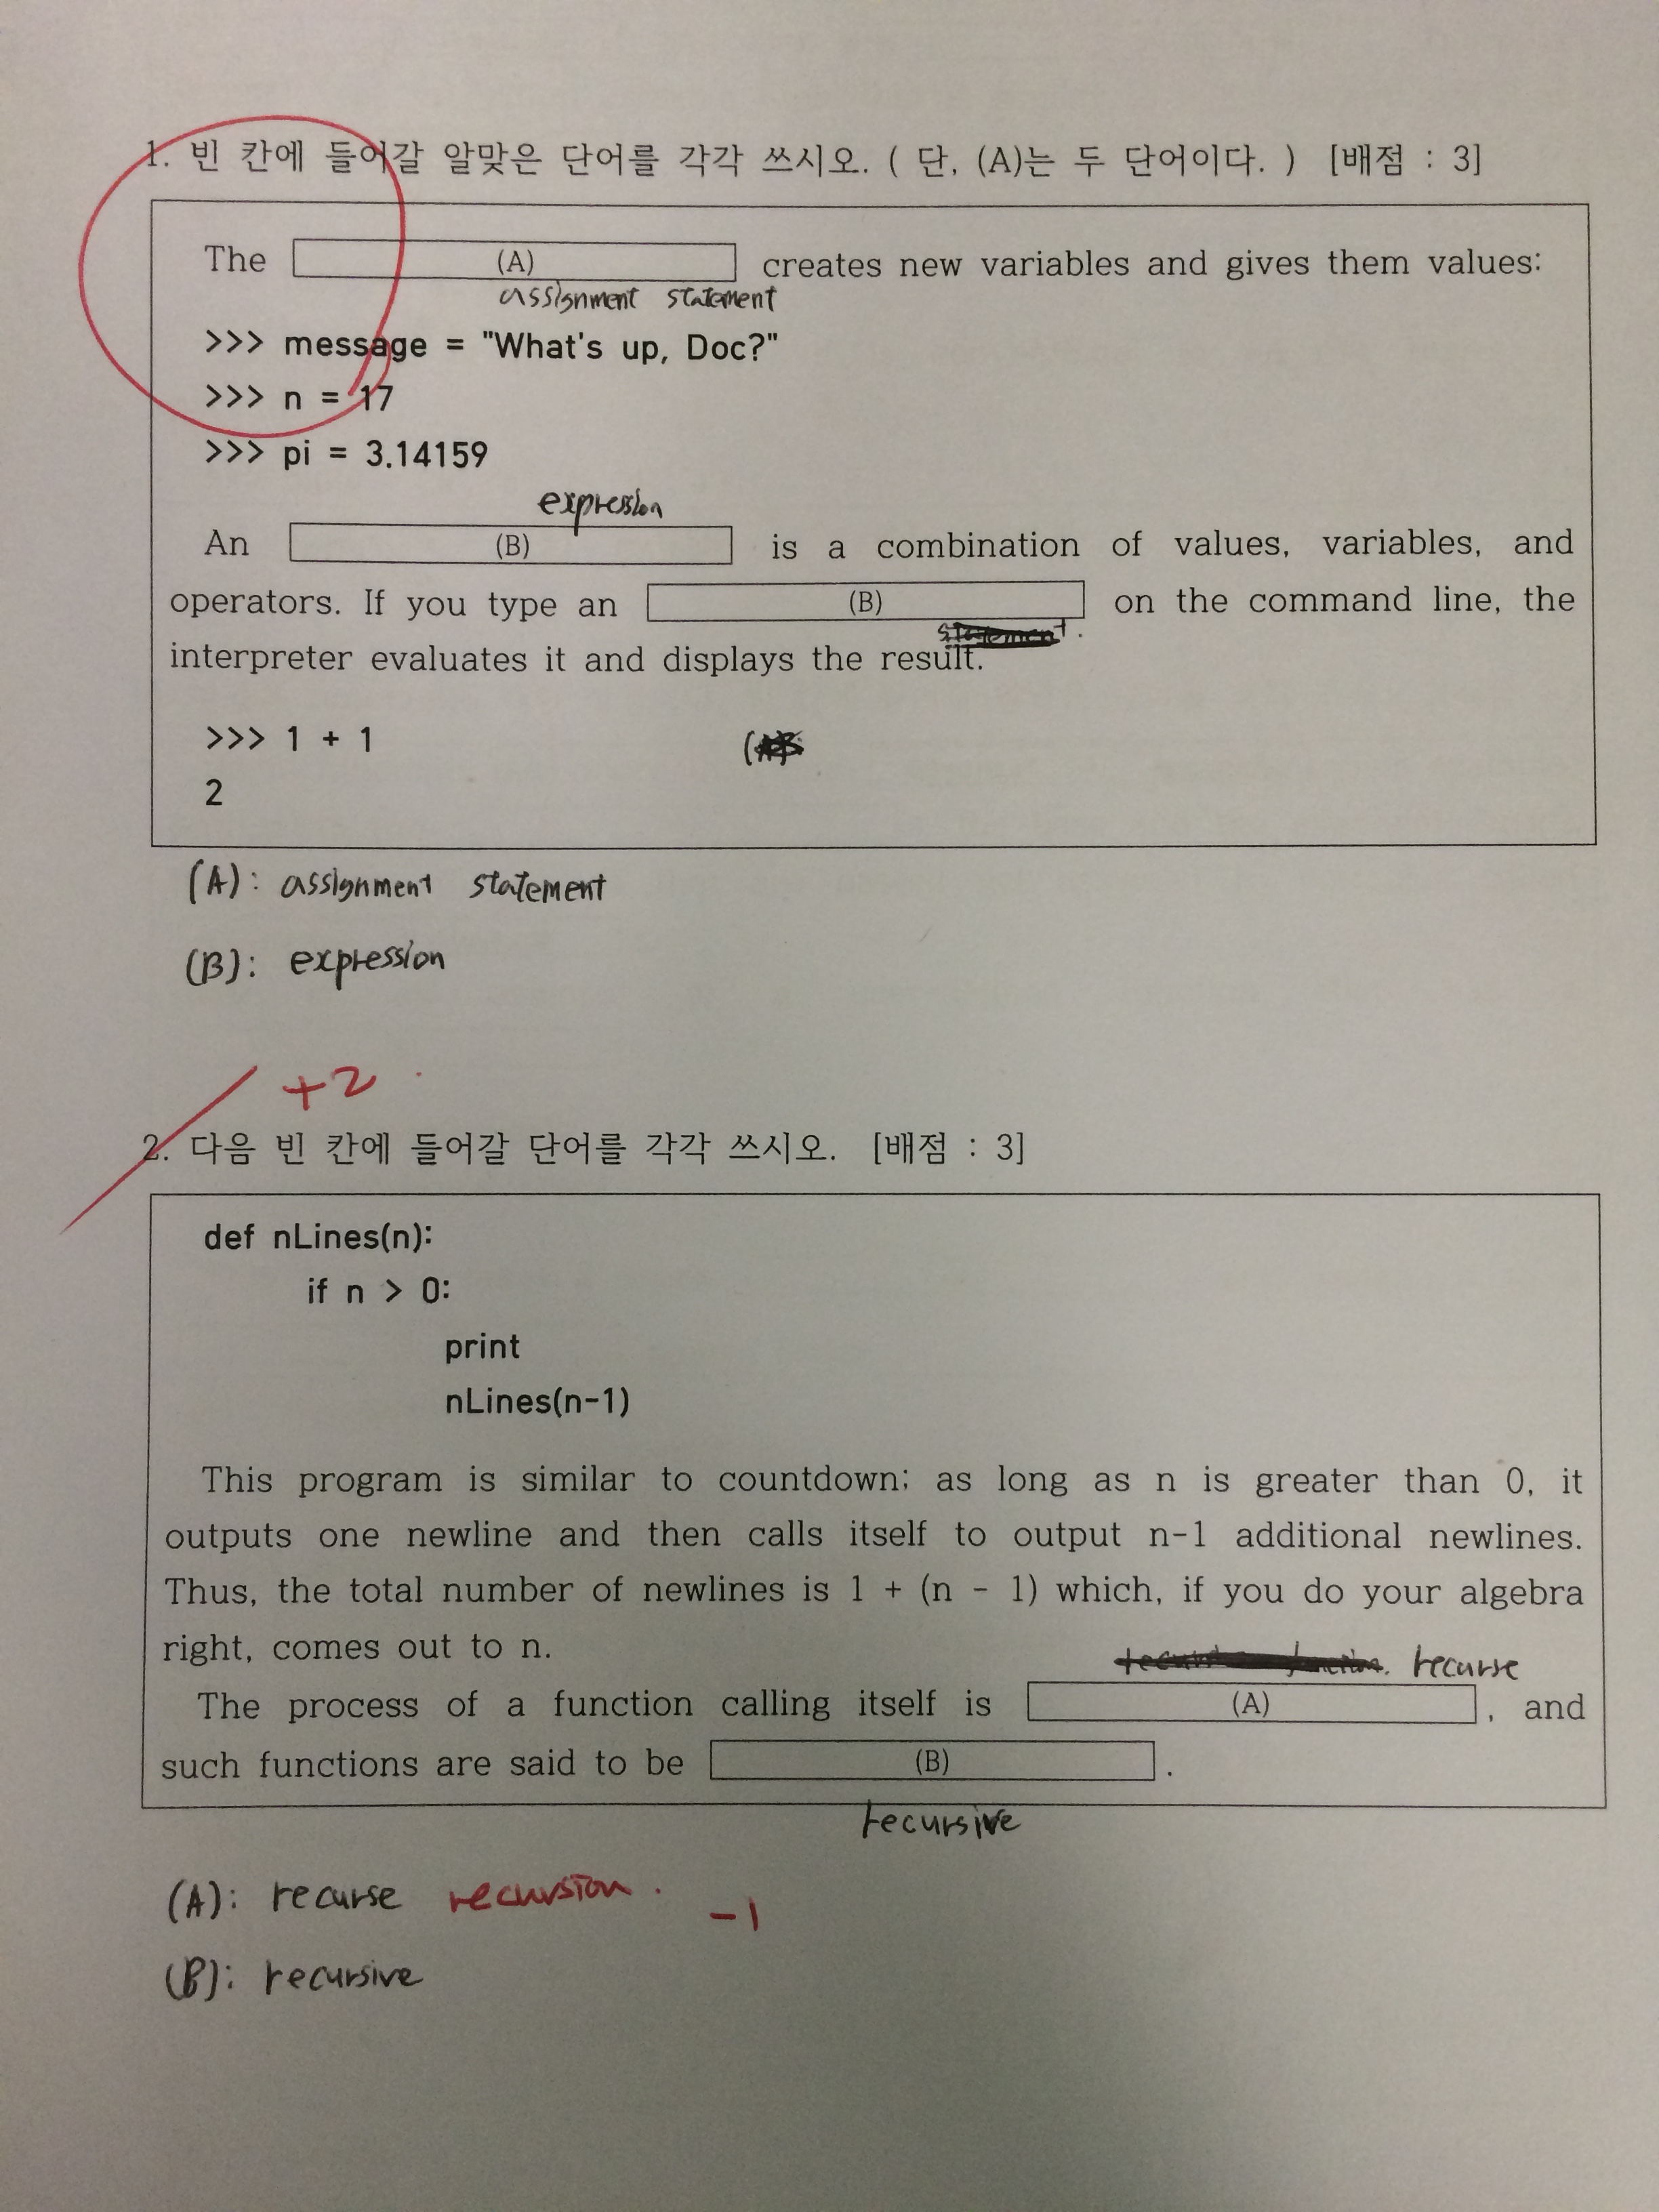 1. 빈 칸에 들어갈 알맞은 단어를 각각 쓰시오. ( 단, (A)는 두 단어이다. ) [배점 : 3]
The (A) creates new variables and gives them values:
assignment statement
>>> message = "What's up, Doc?"
>>> n = 17
>>> pi = 3.14159
expression
An (B) is a combination of values, variables, and
operators. If you type an (B) on the command line, the
statement.
interpreter evaluates it and displays the result.
>>> 1 + 1
2
(A): assignment statement
(B): expression
+2
2. 다음 빈 칸에 들어갈 단어를 각각 쓰시오. [배점 : 3]
def nLines(n):
if n > 0:
print
nLines(n-1)
This program is similar to countdown; as long as n is greater than 0, it
outputs one newline and then calls itself to output n-1 additional newlines.
Thus, the total number of newlines is 1 + (n - 1) which, if you do your algebra
right, comes out to n.
recurse
The process of a function calling itself is (A) , and
such functions are said to be (B) .
recursive
(A): recurse recursion. -1
(B): recursive